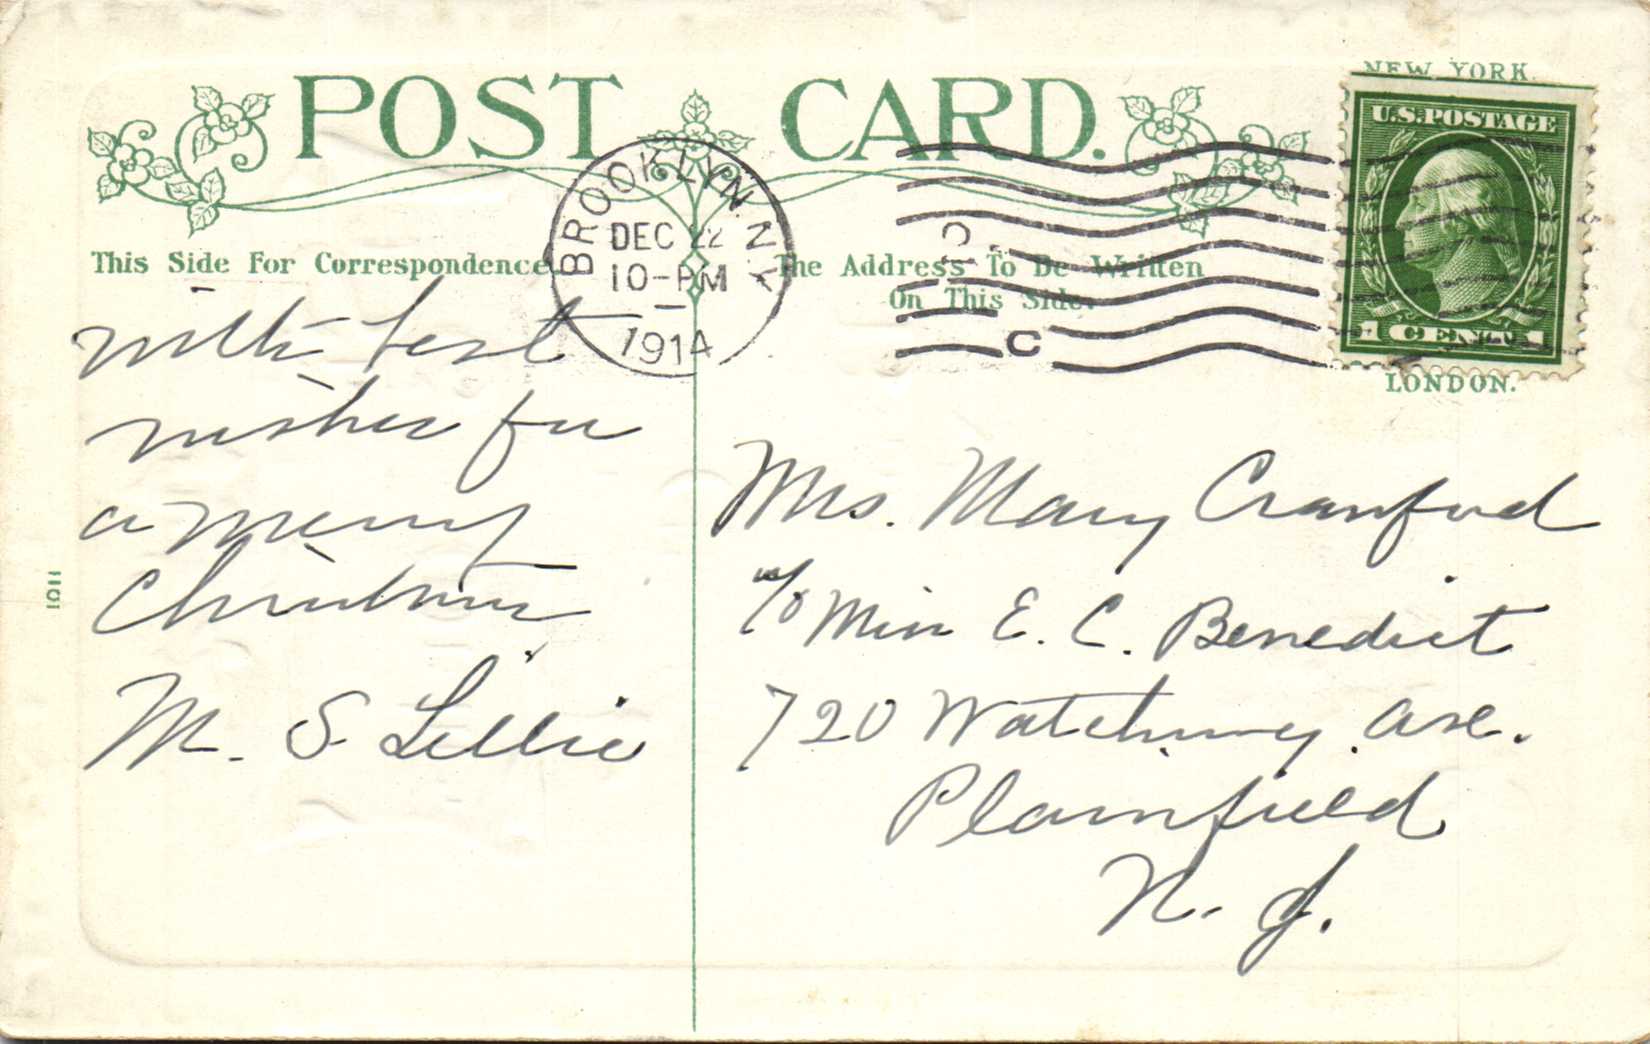 POST CARD.
NEW YORK.
U.S. POSTAGE
1 CENT 1
LONDON.
BROOKLYN, N.Y.
DEC 22
10-PM
1914
C
This Side For Correspondence
The Address To Be Written
On This Side.
with best
wishes for
a merry
Christmas
M. S. Lillie
Mrs. Mary Cranford
c/o Miss E. C. Benedict
720 Watchung Ave.
Plainfield
N. J.
1011